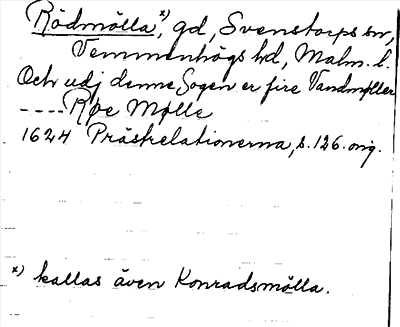 Rödmölla,*) gd, Svenstorps sn,
Vemmenhögs hd, Malm. l.
Och udj denne Sogen er fire Vandmøller
---- Røe Mølle
1624 Prästrelationerna, s. 126. orig.
*) kallas även Konradsmölla.